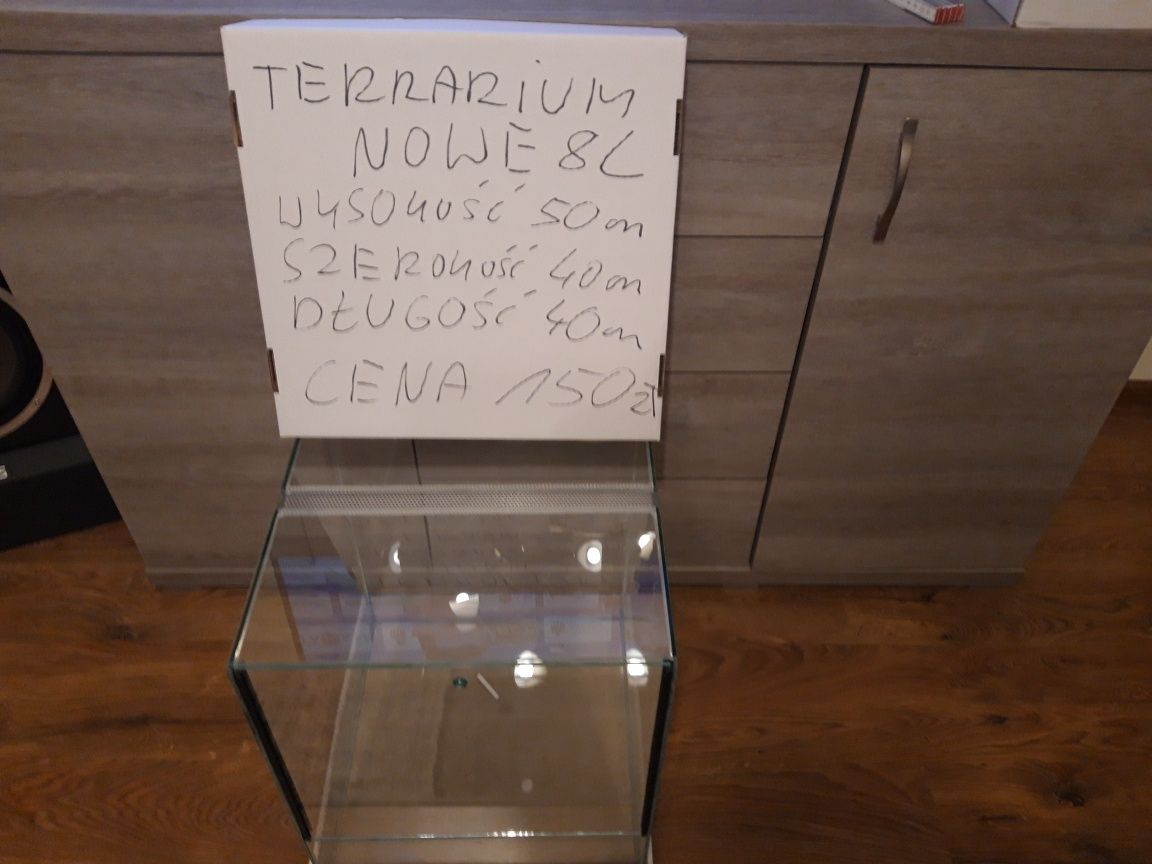 TERRARIUM
NOWE 8L
WYSOKOŚĆ 50cm
SZEROKOŚĆ 40cm
DŁUGOŚĆ 40cm
CENA 150zł